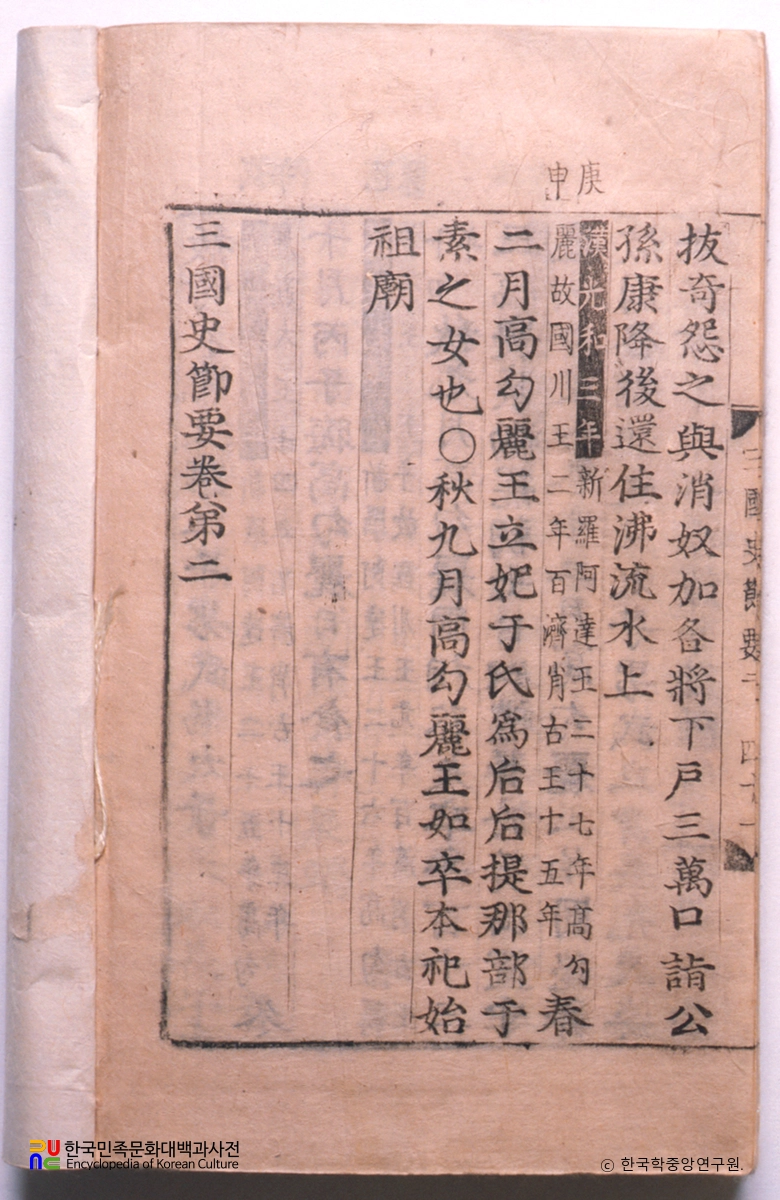 拔奇怨之與消奴加各將下戶三萬口詣公
孫康降後還住沸流水上
庚申
漢光和三年新羅阿達王二十七年髙勾
麗故國川王二年百濟肖古王十五年春
二月高勾麗王立妃于氏爲后后提那部于
素之女也○秋九月高勾麗王如卒本祀始
祖廟
三國史節要卷第二
三國史節要二 四十一
한국민족문화대백과사전
Encyclopedia of Korean Culture
© 한국학중앙연구원.